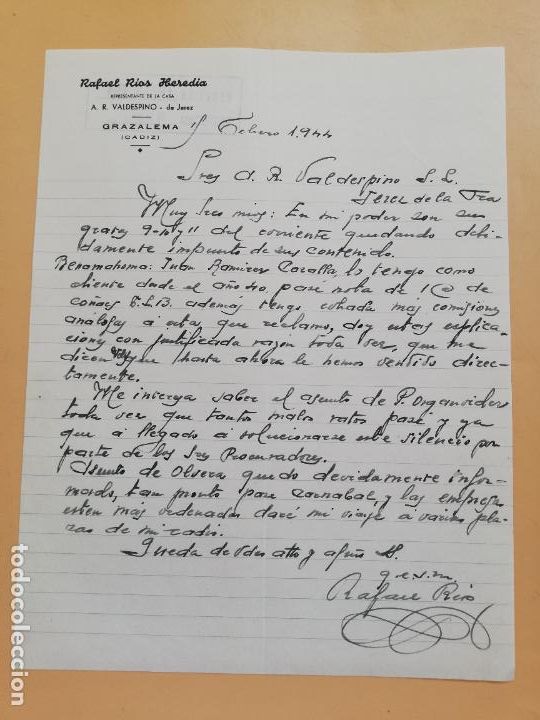 Rafael Ríos Heredia
REPRESENTANTE DE LA CASA
A. R. VALDESPINO - de Jerez
GRAZALEMA
(CADIZ)
15 Febrero 1.944
Sres A. R. Valdespino S. L.
Jerez de la Fra
Muy Sres mios: En mi poder son sus
gratas 9-10 y 11 del corriente quedando debi-
damente impuesto de sus contenido.
Benamahoma: Juan Ramirez lo tengo como
cliente desde el año pasé nota de 1@ de
coñac además tengo cobrada más comisiones
análogas a estas que reclamo, doy estas explica-
ciones con justificada razon toda vez, que me
dicen Vdes que (hasta ahora le hemos vendido direc-
tamente.
Me interesa saber el asunto de P. Organvidez
toda vez que tantos malos ratos pasé y ya
que a llegado a solucionarse este silencio por
parte de los Sres Procuradores.
Asunto de Olvera quedo devidamente infor-
mado, tan pronto pase carnabal, y las empresas
esten más ordenadas daré mi viaje a varias pla-
zas de mi radio.
Queda de Vdes atto y afmo S.
q.e.s.m.
Rafael Rios
todocoleccion